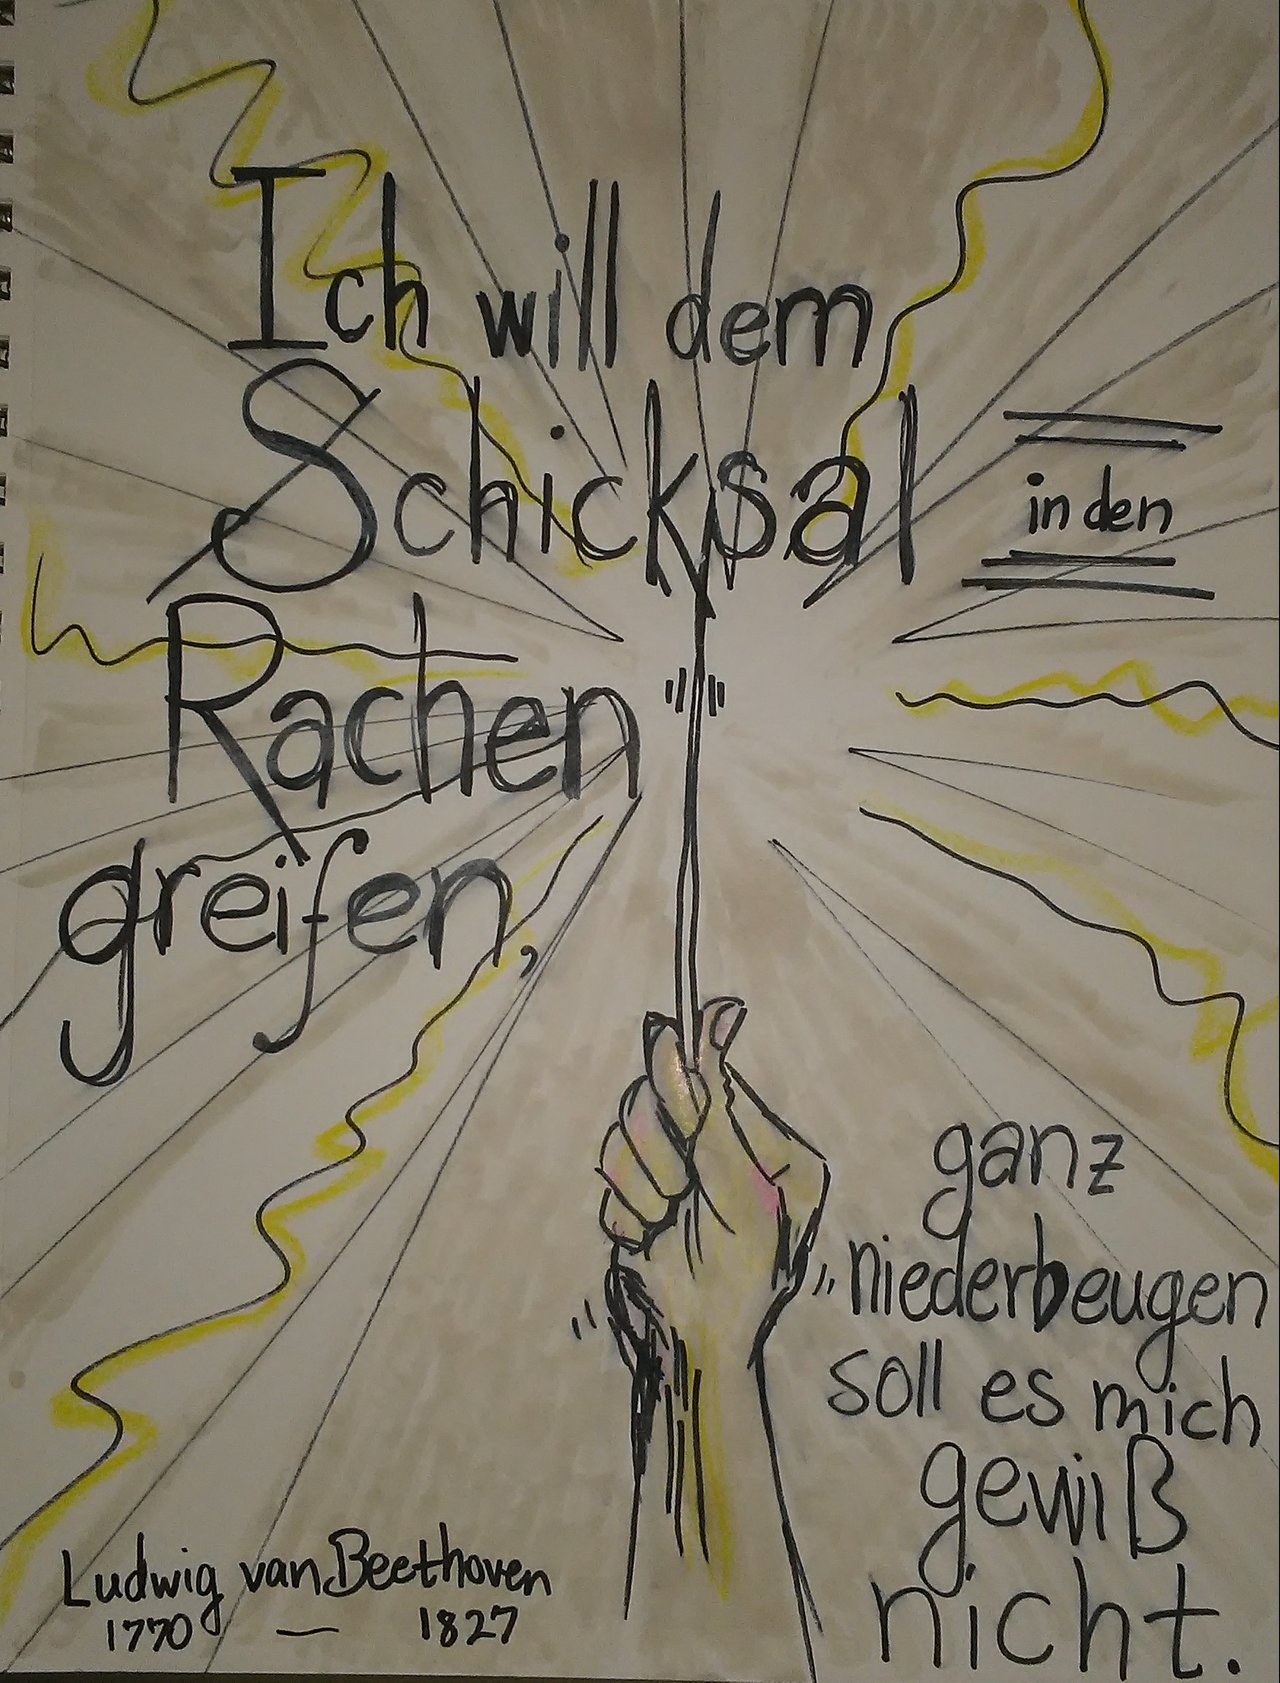 Ich will dem
Schicksal in den
Rachen
greifen,
ganz
niederbeugen
soll es mich
gewiß
nicht.
Ludwig van Beethoven
1770 — 1827